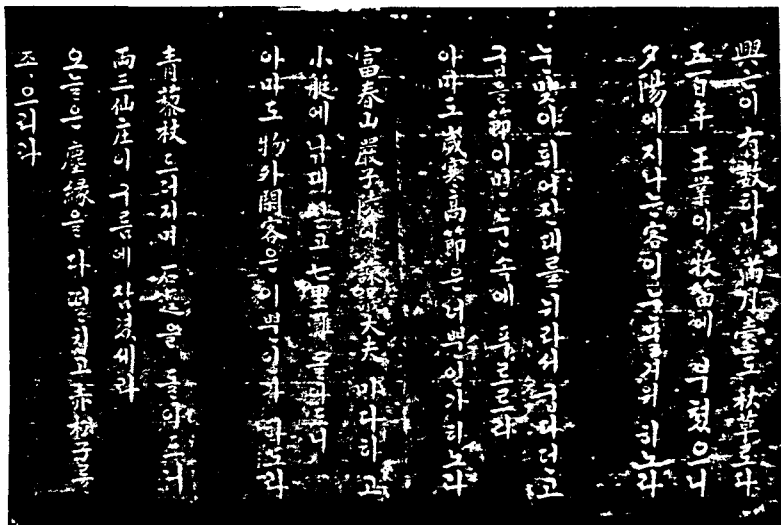 興亡이 有數하니 滿月臺도 秋草로다
五百年 王業이 牧笛에 부쳤으니
夕陽에 지나는 客이 눈물겨워 하노라
눈맞아 휘어진 대를 뉘라서 굽다던고
굽을 節이면 눈 속에 푸르르랴
아마도 歲寒高節은 너뿐인가 하노라
富春山 嚴子陵이 諫議大夫 마다하고
小艇에 낚대 싣고 七里灘 돌아드니
아마도 物外閑客은 이뿐인가 하노라
靑藜杖 드더지며 石逕을 돌아드니
兩三仙庄이 구름에 잠겼세라
오늘은 塵緣을 다 떨치고 赤松子를
조으리라